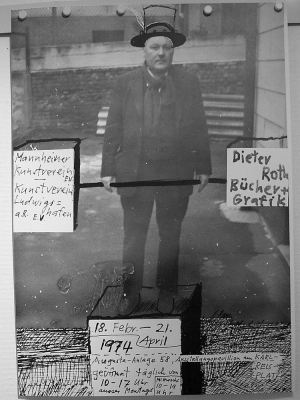 Mannheimer
Kunstverein
e.V.
Kunstverein
Ludwigs=
a.R. e.V. hafen
Dieter
Roth
Bücher+
Grafik
18. Febr. – 21.
1974 April
Augusta-Anlage 58, Ausstellungspavillon am KARL-
REISS
PLATZ
geöffnet täglich von
10-17 Uhr
ausser Montags
10-19
Uhr